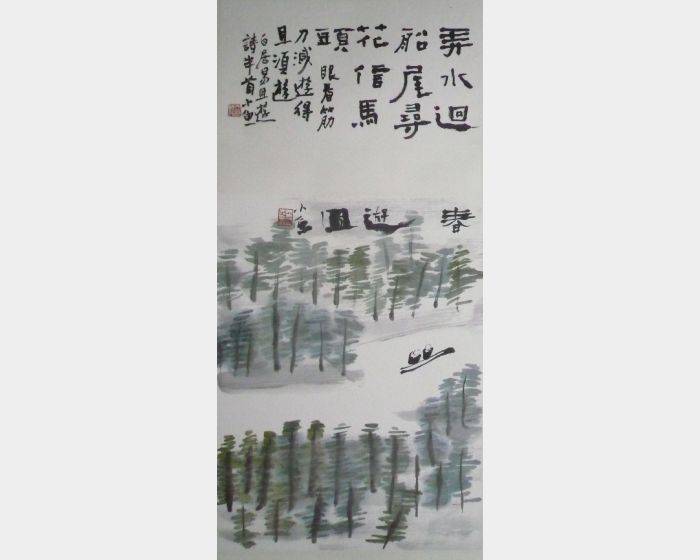 弄水迴
船尾尋
花信馬
頭眼看筋
力減遊得
且須遊
白居易且遊
詩半首小魚
春遊圖小魚